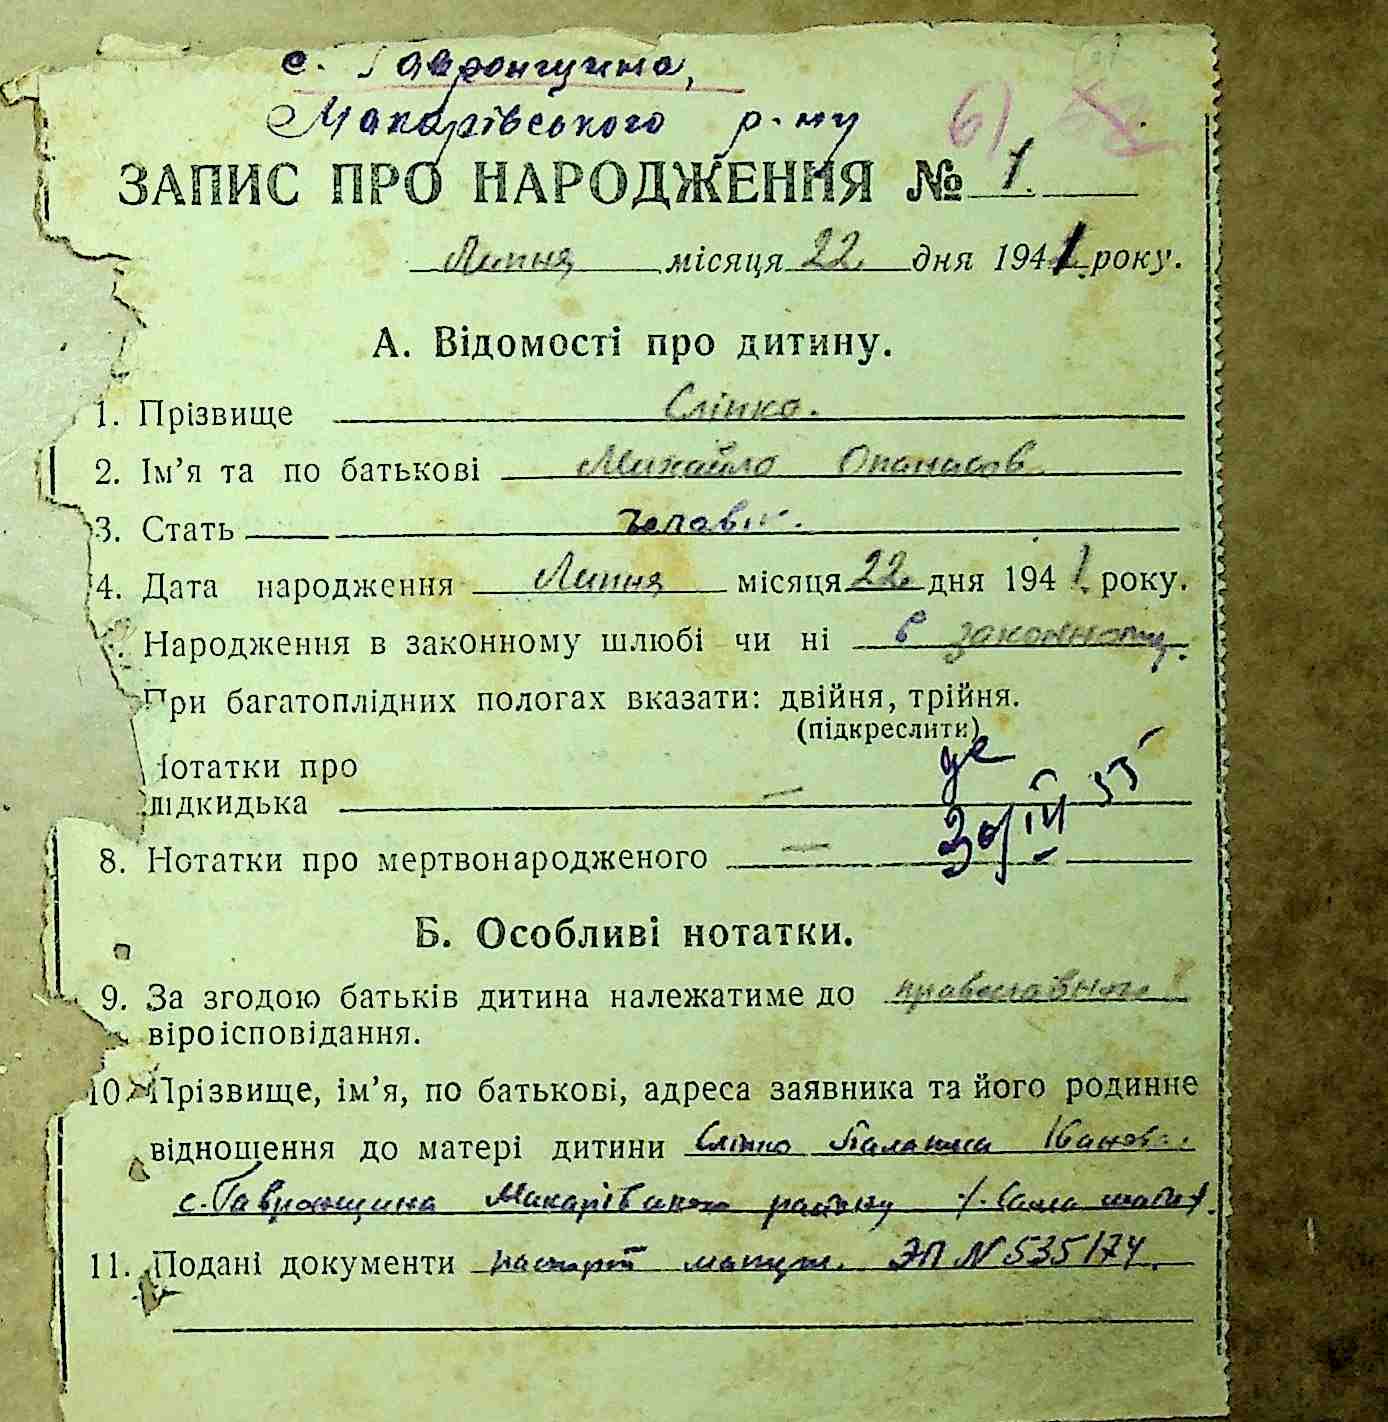 с. Гавронщина,
Макарівського р-ну
б)
ЗАПИС ПРО НАРОДЖЕННЯ № 1.
Липня місяця 22 дня 1941. року.
А. Відомості про дитину.
1. Прізвище Сліпко.
2. Ім'я та по батькові Михайло Опанасов
3. Стать Человік.
4. Дата народження Липня місяця 22 дня 1941. року.
Народження в законному шлюбі чи ні в законному.
При багатоплідних пологах вказати: двійня, трійня.
(підкреслити)
Нотатки про
підкидька —
30/III 55
8. Нотатки про мертвонародженого —
Б. Особливі нотатки.
9. За згодою батьків дитина належатиме до православного
віроісповідання.
10. Прізвище, ім'я, по батькові, адреса заявника та його родинне
відношення до матері дитини Сліпко Палашка Іванов.
с. Гавронщина Макарівського району /. Сама мати/.
11. Подані документи паспорт матери. ЭП N 535174.